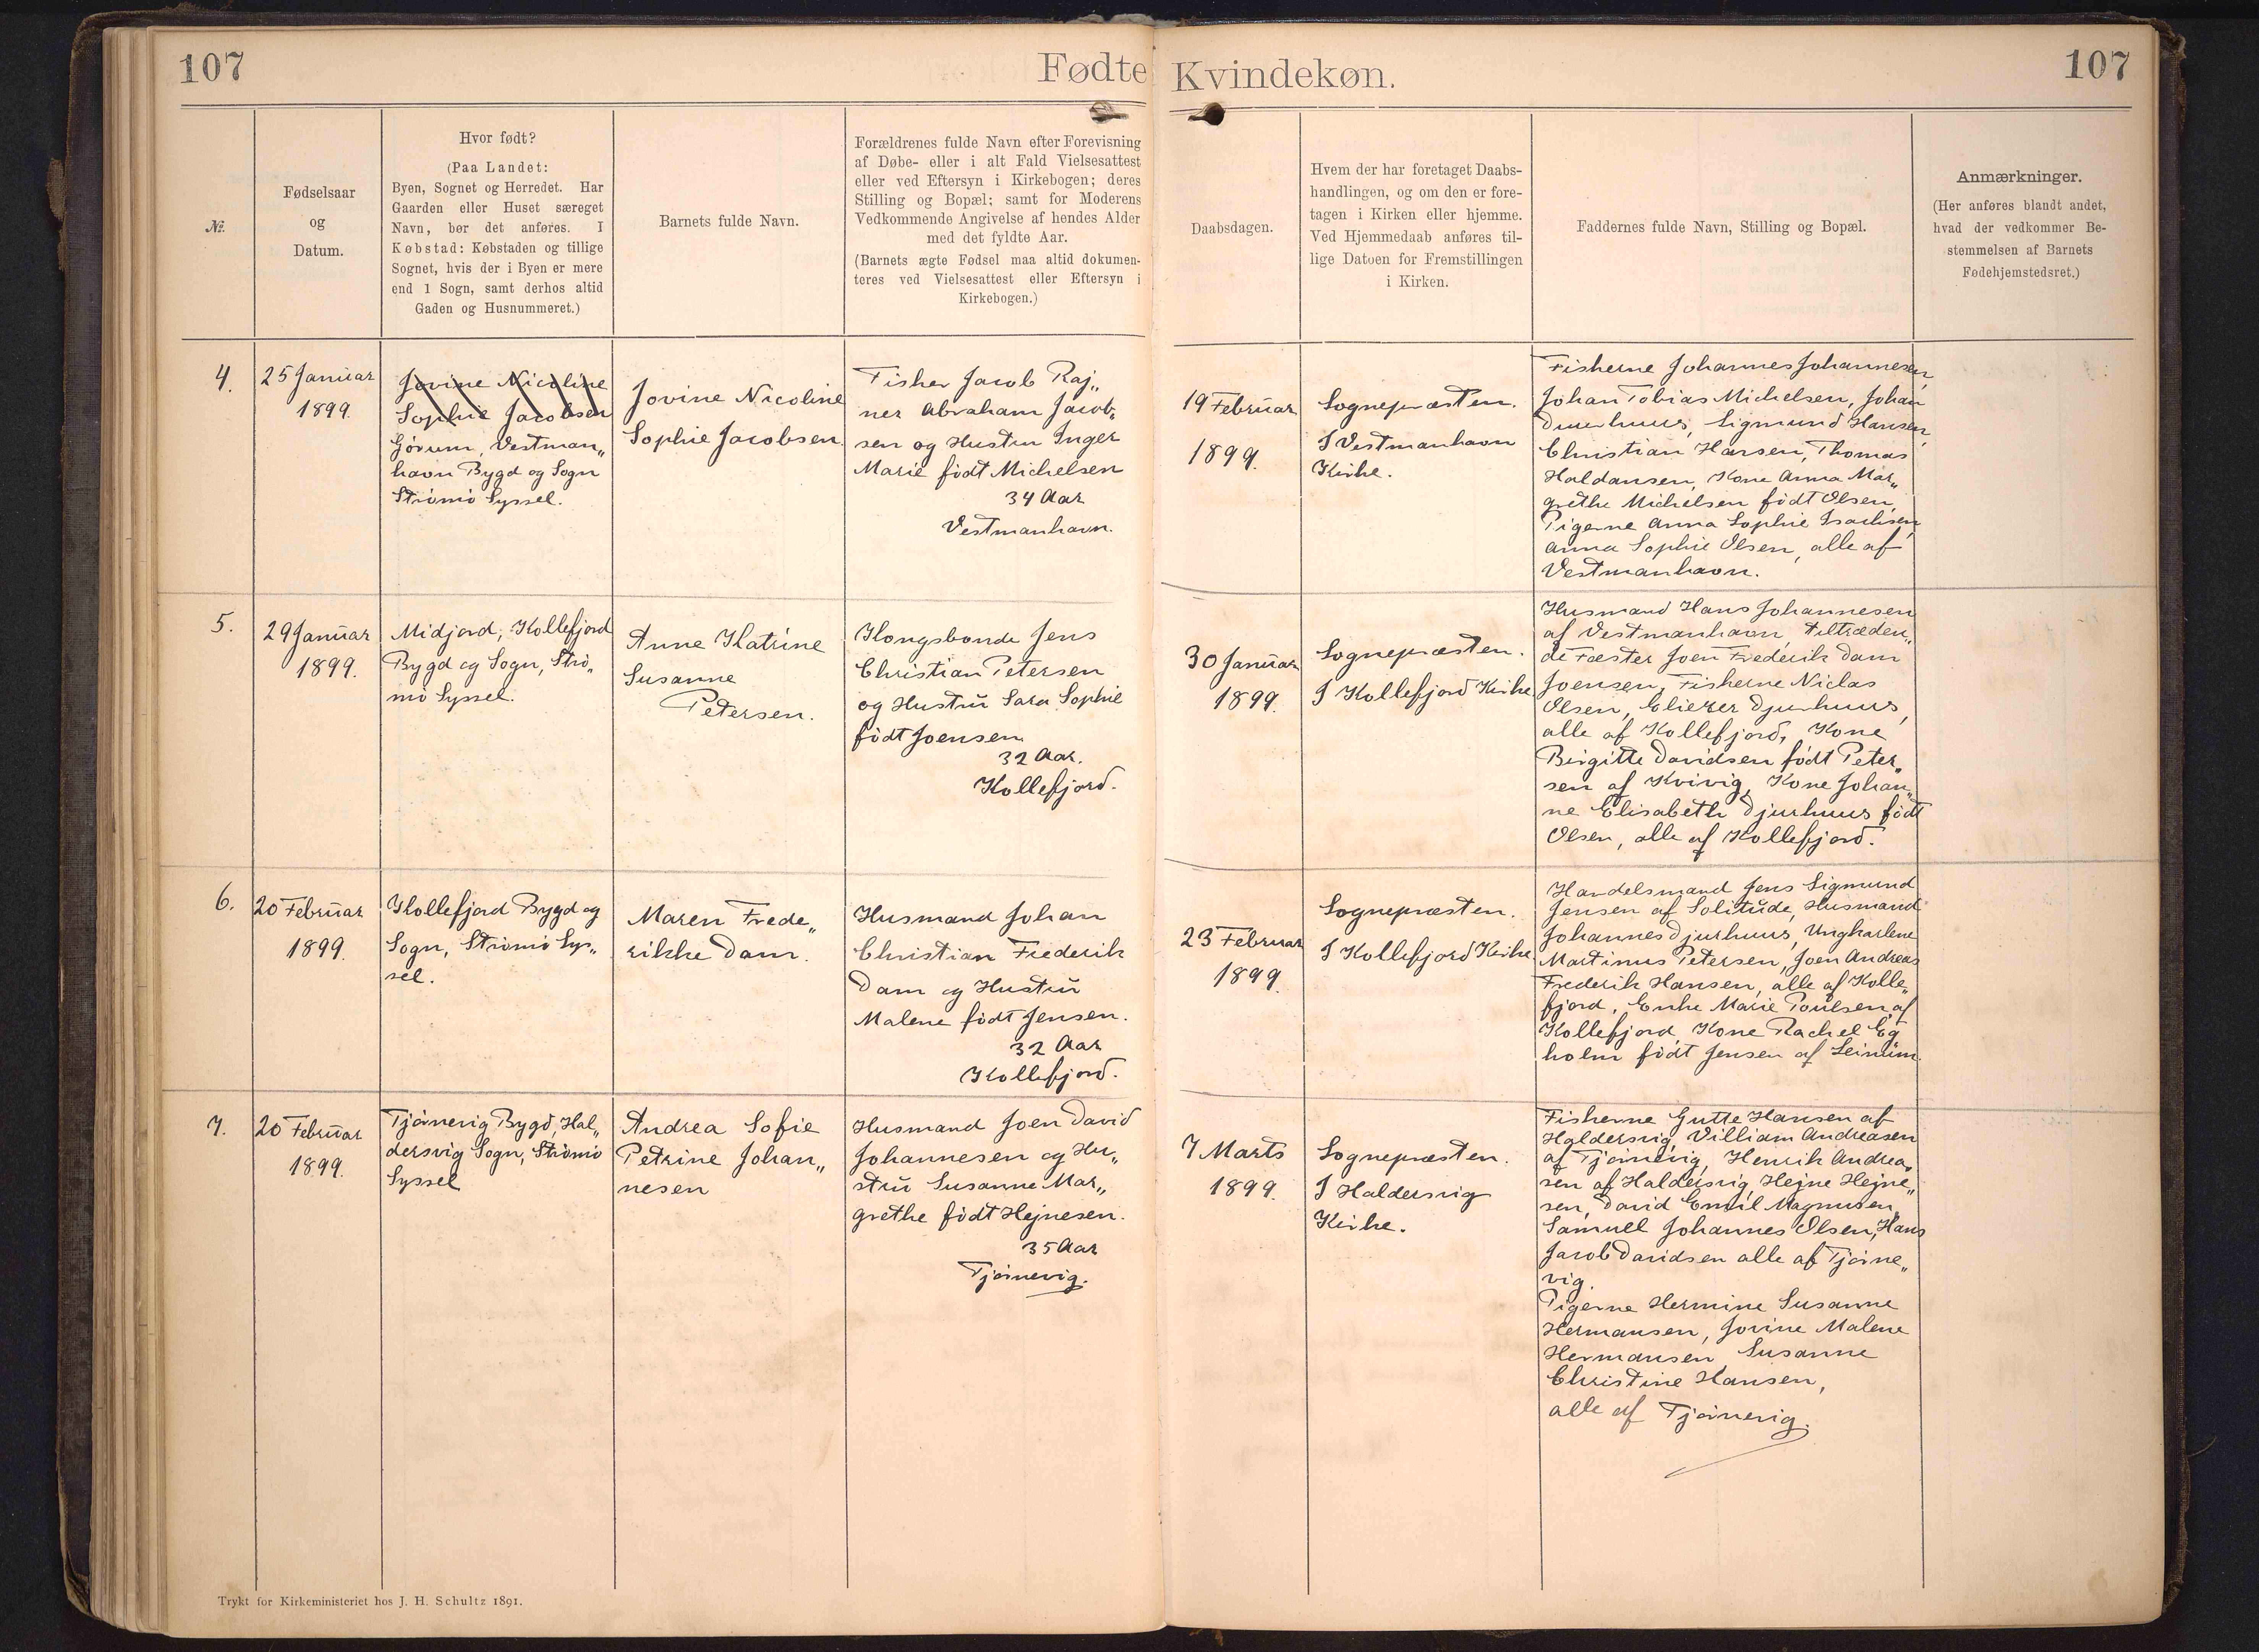 107
Fødte
Kvindekøn.
107
№.
Fødselsaar
og
Datum.
Hvor født?
(Paa Landet:
Byen, Sognet og Herredet. Har
Gaarden eller Huset særeget
Navn, bør det anføres. I
Købstad: Købstaden og tillige
Sognet, hvis der i Byen er mere
end 1 Sogn, samt derhos altid
Gaden og Husnummeret.)
Barnets fulde Navn.
Forældrenes fulde Navn efter Forevisning
af Døbe- eller i alt Fald Vielsesattest
eller ved Eftersyn i Kirkebogen; deres
Stilling og Bopæl; samt for Moderens
Vedkommende Angivelse af hendes Alder
med det fyldte Aar.
(Barnets ægte Fødsel maa altid dokumen-
teres ved Vielsesattest eller Eftersyn i
Kirkebogen.)
Daabsdagen.
Hvem der har foretaget Daabs-
handlingen, og om den er fore-
tagen i Kirken eller hjemme.
Ved Hjemmedaab anføres til-
lige Datoen for Fremstillingen
i Kirken.
Faddernes fulde Navn, Stilling og Bopæl.
Anmærkninger.
(Her anføres blandt andet,
hvad der vedkommer Be-
stemmelsen af Barnets
Fødehjemstedsret.)
4.
25 Januar
1899.
Jovine Nicoline
Sophie Jacobsen
Gørum, Vestman„
havn Bygd og Sogn
Strømø Syssel.
Jovine Nicoline
Sophie Jacobsen.
Fisker Jacob Raj„
ner Abraham Jacob„
sen og Hustru Inger
Marie født Michelsen
34 Aar
Vestmanhavn.
19 Februar
1899.
Sognepræsten.
I Vestmanhavn
Kirke.
Fiskerne Johannes Johannesen,
Johan Tobias Michelsen, Johan
Duurhuus, Sigmund Hansen,
Christian Hansen, Thomas
Haldansen, Kone Anna Mar„
grethe Michelsen født Olsen,
Pigerne Anna Sophie Isachsen,
Anna Sophie Olsen, alle af
Vestmanhavn.
5.
29 Januar
1899.
Midjord, Kollefjord
Bygd og Sogn, Strø„
mø Syssel.
Anne Katrine
Susanne
Petersen.
Kongsbonde Jens
Christian Petersen
og Hustru Sara Sophie
født Joensen
32 Aar.
Kollefjord.
30 Januar
1899.
Sognepræsten.
I Kollefjord Kirke
Husmand Hans Johannesen
af Vestmanhavn, tiltræden„
de Fæster Joen Frederik Dam
Joensen, Fiskerne Niclas
Olsen, Eliezer Djurhuus,
alle af Kollefjord, Kone
Birgitte Davidsen født Peter„
sen af Kvivig, Kone Johan„
ne Elisabeth Djurhuus født
Olsen, alle af Kollefjord.
6.
20 Februar
1899.
Kollefjord Bygd og
Sogn, Strømø Sys„
sel.
Maren Frede„
rikke Dam.
Husmand Johan
Christian Frederik
Dam og Hustru
Malene født Jensen.
32 Aar
Kollefjord.
23 Februar
1899
Sognepræsten.
I Kollefjord Kirke
Handelsmand Jens Sigmund
Jensen af Solitude, Husmand
Johannes Djurhuus, Ungkarlene
Martinus Petersen, Joen Andreas
Frederik Hansen, alle af Kolle„
fjord, Enke Marie Poulsen af
Kollefjord, Kone Rachel Eg
holm født Jensen af Leinum.
7.
20 Februar
1899.
Tjørnevig Bygd, Hal„
dersvig Sogn, Strømø
Syssel
Andrea Sofie
Petrine Johan„
nesen
Husmand Joen David
Johannesen og Hu„
stru Susanne Mar„
grethe født Hejnesen.
35 Aar
Tjørnevig.
7 Marts
1899.
Sognepræsten.
I Haldersvig
Kirke.
Fiskerne Gutte Hansen af
Haldersvig, Villiam Andreasen
af Tjørnevig, Henrik Andrea„
sen af Haldersvig, Hejne Hejne„
sen, David Emil Magnusen,
Samuel Johannes Olsen, Hans
Jacob Davidsen alle af Tjørne„
vig.
Pigerne Hermine Susanne
Hermansen, Jovine Malene
Hermansen, Susanne
Christine Hansen,
alle af Tjørnevig.
Trykt for Kirkeministeriet hos J. H. Schultz 1891.